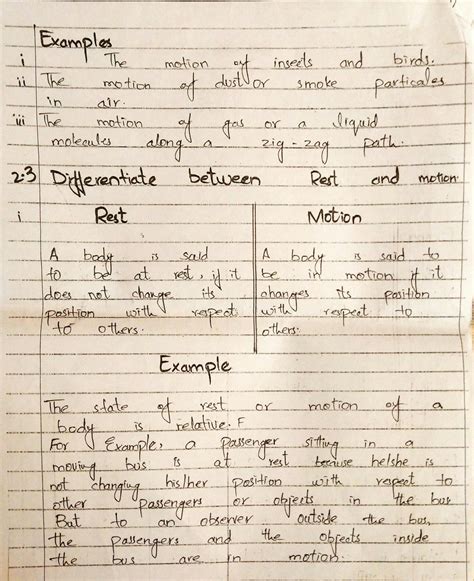 Examples
i The motion of insects and birds.
ii The motion of dust or smoke particales
in air.
iii The motion of gas or a liquid
molecules along a zig-zag path.
2.3 Differentiate between Rest and motion.
i Rest Motion
A body is said A body is said to
to be at rest, if it be in motion if it
does not change its changes its position
position with respect with respect to
to others. others.
Example
The state of rest or motion of a
body is relative. F
For Example, a passenger sitting in a
moving bus is at rest because he/she is
not changing his/her position with respect to
other passengers or objects in the bus
But to an observer outside the bus,
the passengers and the objects inside
the bus are in motion.